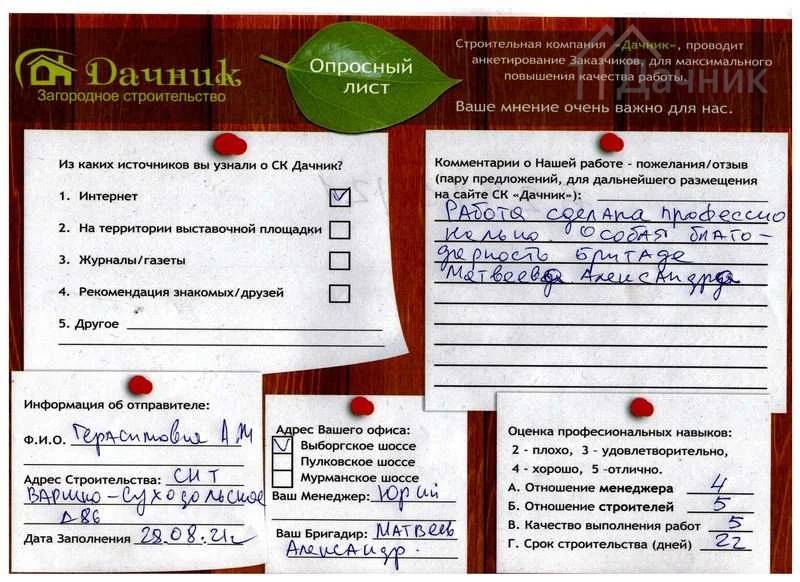 Дачник
Загородное строительство
Опросный
лист
Строительная компания «Дачник», проводит
анкетирование Заказчиков, для максимального
повышения качества работы.
Ваше мнение очень важно для нас.
Дачник
Из каких источников вы узнали о СК Дачник?
1. Интернет
2. На территории выставочной площадки
3. Журналы/газеты
4. Рекомендация знакомых/друзей
5. Другое
Комментарии о Нашей работе - пожелания/отзыв
(пару предложений, для дальнейшего размещения
на сайте СК «Дачник»):
Работа сделана профессио
нально. Особая благо-
дарность бригаде
Матвеева Александра
Информация об отправителе:
Ф.И.О. А М
Адрес Строительства: СНТ
Варшко-Суходольское
Д-86
Дата Заполнения 28.08.21г
Адрес Вашего офиса:
Выборгское шоссе
Пулковское шоссе
Мурманское шоссе
Ваш Менеджер: Юрий
Ваш Бригадир: Матвеев
Александр.
Оценка професиональных навыков:
2 - плохо, 3 - удовлетворительно,
4 - хорошо, 5 -отлично.
А. Отношение менеджера 4
Б. Отношение строителей 5
В. Качество выполнения работ 5
Г. Срок строительства (дней) 22